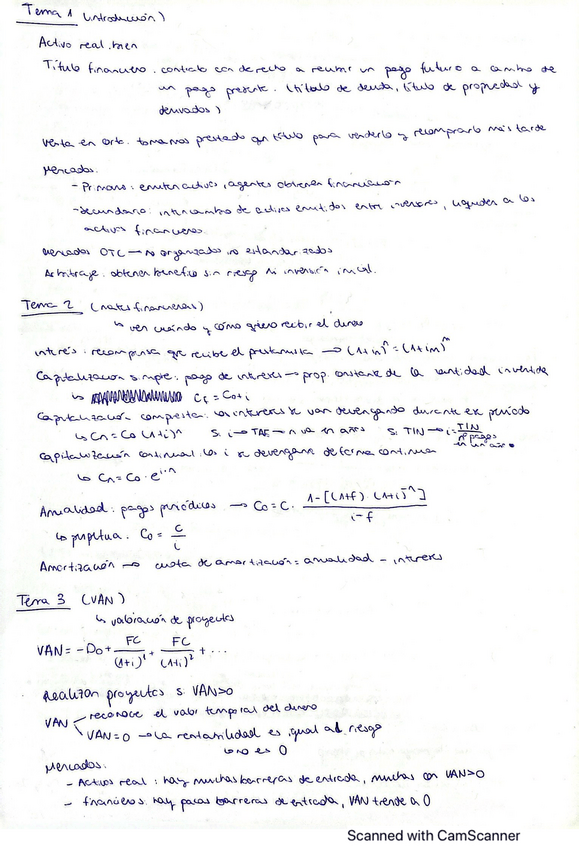 Tema 1 (introducción)
Activo real: bien
Título financiero: contrato con derecho a recibir un pago futuro a cambio de
un pago presente. (título de deuda, título de propiedad y
derivados)
Venta en corto: tomamos prestado un título para venderlo y recomprarlo más tarde
Mercados:
- Primario: emiten activos, agentes obtienen financiación
- Secundario: intercambio de activos emitidos entre inversores, liquidez a los
activos financieros.
Mercados OTC → no organizados, no estandarizados
Arbitraje: obtener beneficio sin riesgo ni inversión inicial.
Tema 2 (mates financieras)
↳ ver cuándo y cómo quiero recibir el dinero
interés: recompensa que recibe el prestamista → (1+in)^n = (1+im)^m
Capitalización simple: pago de intereses → prop. constante de la cantidad invertida
↳ Cf = Co+i
Capitalización compuesta: los intereses se van devengando durante ese período
↳ Cn = Co (1+i)^n Si i → TAE → n va en años Si TIN → i = TIN / nº pagos en un año
Capitalización continua: los i se devengan de forma continua
↳ Cn = Co · e^i·n
Anualidad: pagos periódicos → Co = C · 1-[(1+f) · (1+i)^-n] / i-f
↳ perpetua: Co = C / i
Amortización → cuota de amortización = anualidad - intereses
Tema 3 (VAN)
↳ valoración de proyectos
VAN = -Do + FC / (1+i)^1 + FC / (1+i)^2 + ...
Realizan proyectos si VAN>0
VAN reconoce el valor temporal del dinero
VAN=0 → la rentabilidad es igual al riesgo
↳ no es 0
Mercados:
- Activos real: hay muchas barreras de entrada, muchas con VAN>0
- financieros: hay pocas barreras de entrada, VAN tiende a 0
Scanned with CamScanner